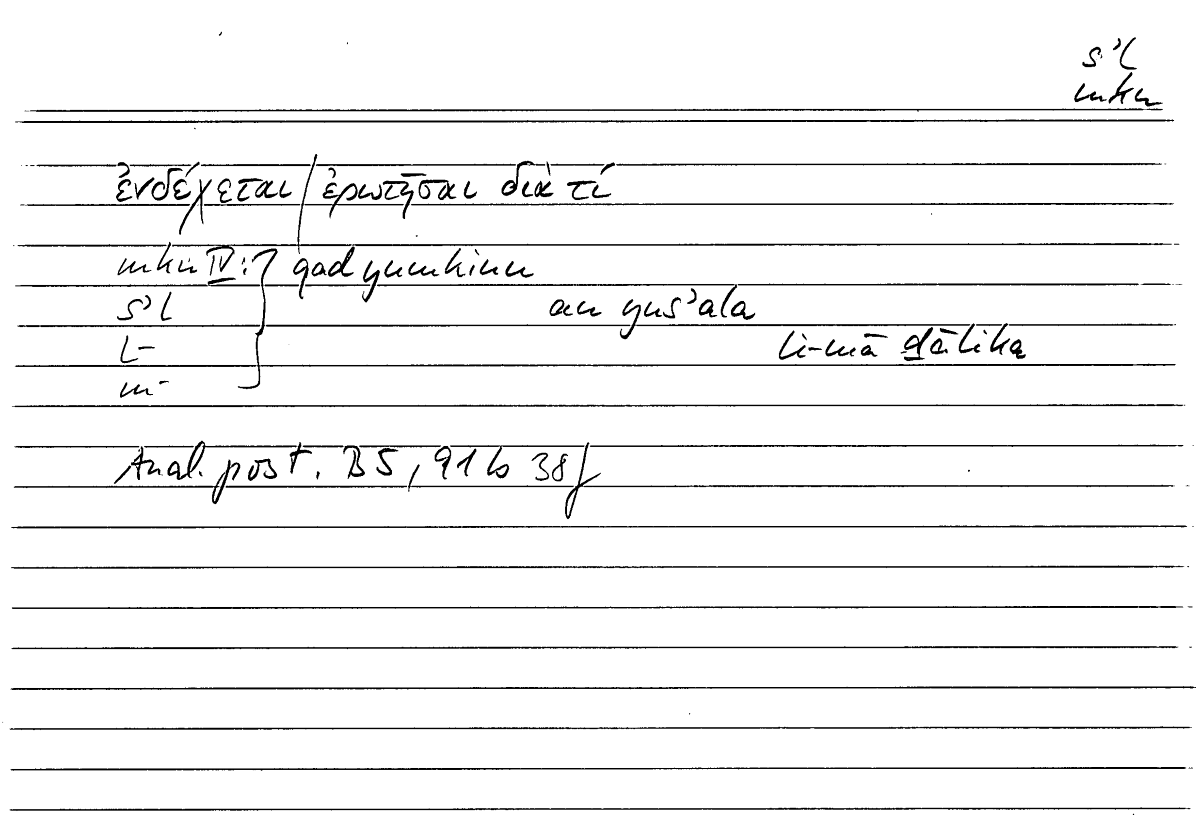 sʾl
mkn
ἐνδέχεται / ἐρωτῆσαι διὰ τί
mkn IV: qad yumkinu
sʾl an yusʾala
l- li-mā ḏālika
m-
Anal. post. B5, 91 b 38f